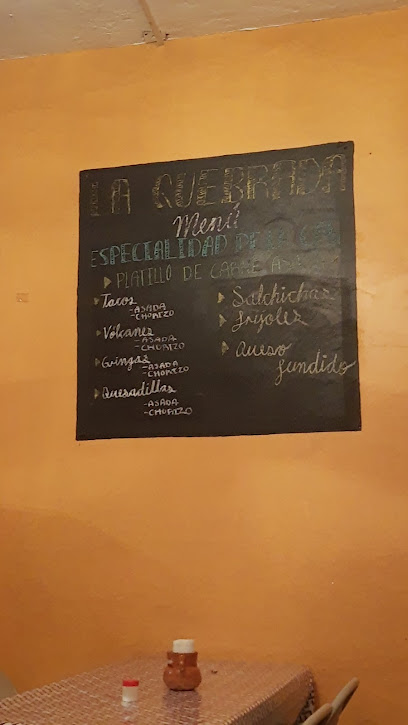 LA QUEBRADA
Menú
ESPECIALIDAD DE LA
PLATILLO DE CARNE
Tacos
-ASADA
-CHORIZO
Volcanes
-ASADA
-CHORIZO
Gringas
-ASADA
-CHORIZO
Quesadillas
-ASADA
-CHORIZO
Salchichas
frijoles
Queso
fundido